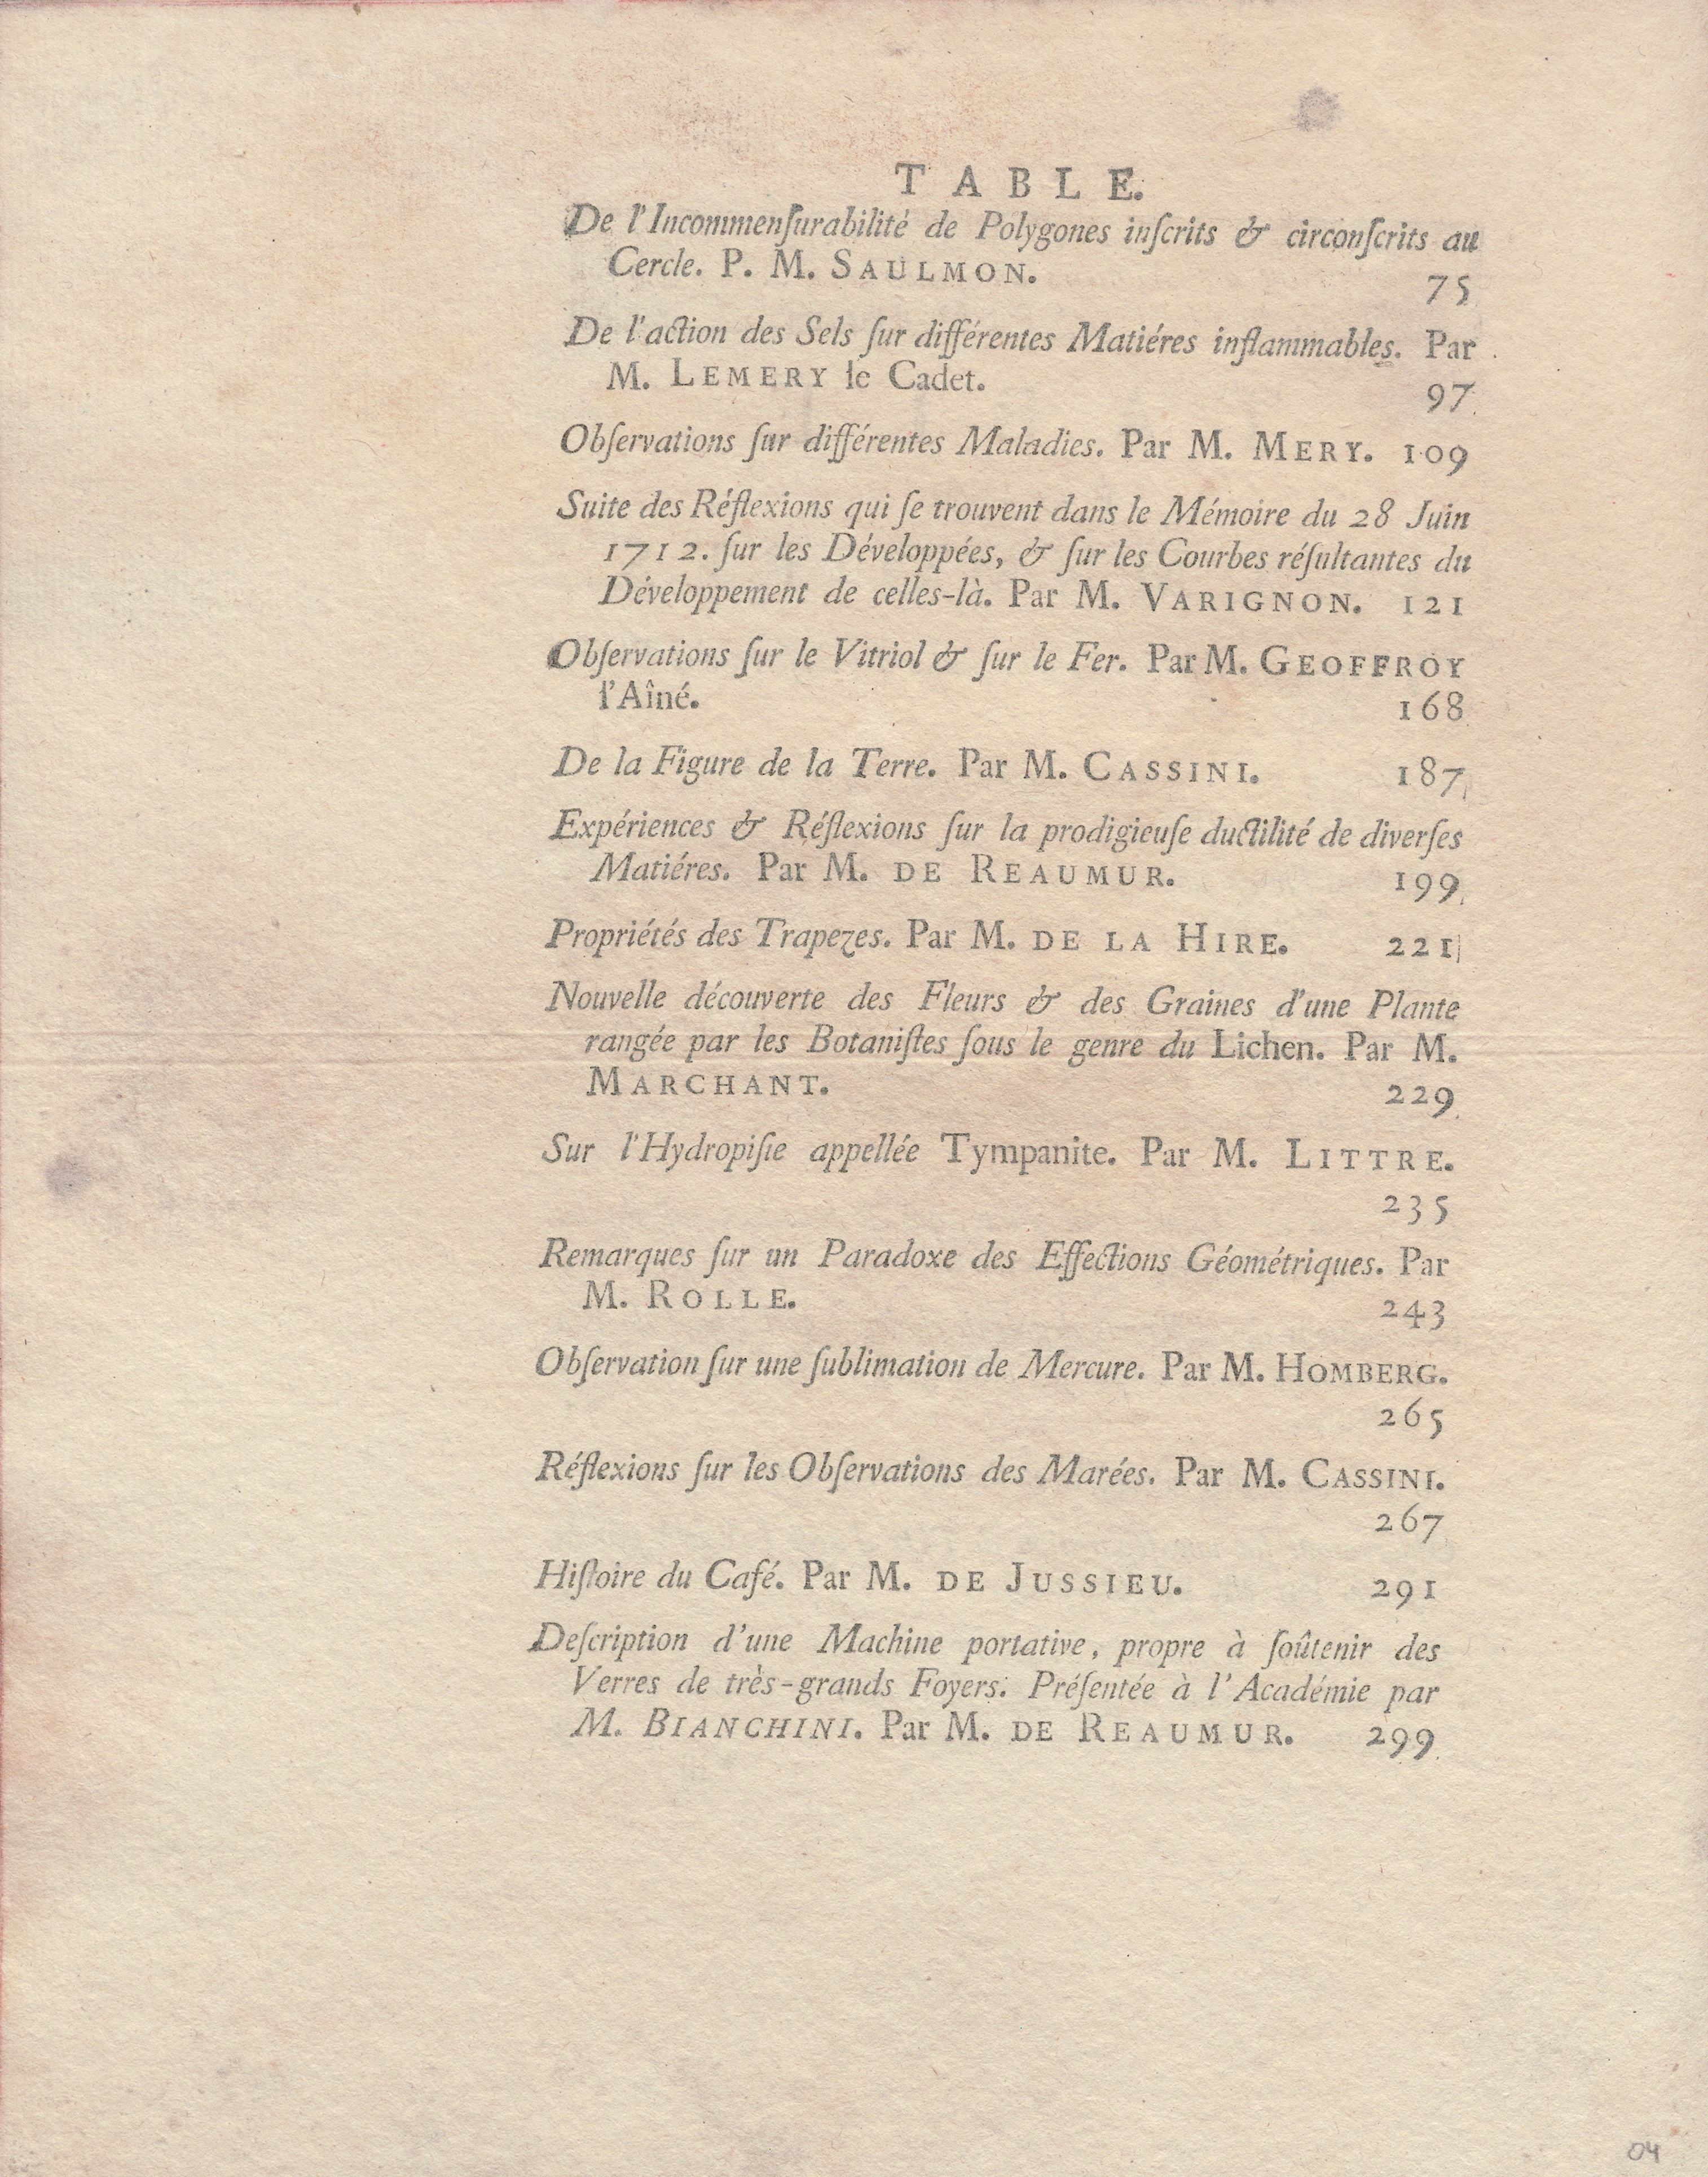 TABLE.
De l'Incommenſurabilité de Polygones inſcrits & circonſcrits au
Cercle. P. M. SAULMON. 75
De l'action des Sels ſur différentes Matiéres inflammables. Par
M. LEMERY le Cadet. 97
Obſervations ſur différentes Maladies. Par M. MERY. 109
Suite des Réflexions qui ſe trouvent dans le Mémoire du 28 Juin
1712. ſur les Développées, & ſur les Courbes réſultantes du
Développement de celles-là. Par M. VARIGNON. 121
Obſervations ſur le Vitriol & ſur le Fer. Par M. GEOFFROY
l'Aîné. 168
De la Figure de la Terre. Par M. CASSINI. 187
Expériences & Réflexions ſur la prodigieuſe ductilité de diverſes
Matiéres. Par M. DE REAUMUR. 199
Propriétés des Trapezes. Par M. DE LA HIRE. 221
Nouvelle découverte des Fleurs & des Graines d'une Plante
rangée par les Botaniſtes ſous le genre du Lichen. Par M.
MARCHANT. 229
Sur l'Hydropiſie appellée Tympanite. Par M. LITTRE.
235
Remarques ſur un Paradoxe des Effections Géométriques. Par
M. ROLLE. 243
Obſervation ſur une ſublimation de Mercure. Par M. HOMBERG.
265
Réflexions ſur les Obſervations des Marées. Par M. CASSINI.
267
Hiſtoire du Café. Par M. DE JUSSIEU. 291
Deſcription d'une Machine portative, propre à ſoûtenir des
Verres de très-grands Foyers. Préſentée à l'Académie par
M. BIANCHINI. Par M. DE REAUMUR. 299
04